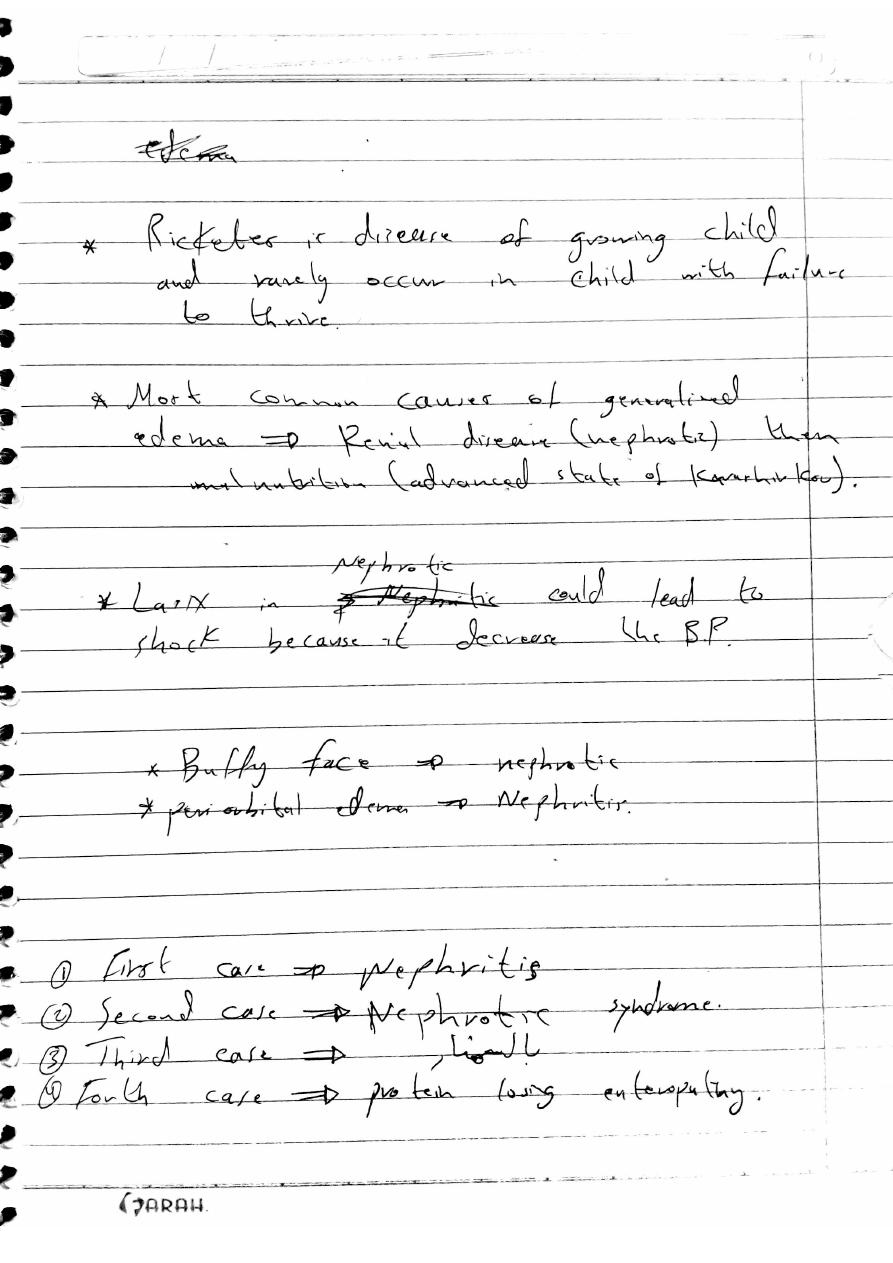 edema
* Ricketes is disease of growing child
and rarely occur in child with failure
to thrive.
* Most common causes of generalized
edema ⇒ Renial disease (nephrotic) then
malnutrition (advanced state of Kwarshirkou).
Nephrotic
* Lasix in Nephritic could lead to
shock because it decrease the B.P.
* Buffy face ⇒ nephrotic
* periorbital edema ⇒ Nephritis.
① First case ⇒ Nephritis
② Second case ⇒ Nephrotic syndrome.
③ Third case ⇒
④ Fourth case ⇒ protein losing enteropathy.
JARAH.